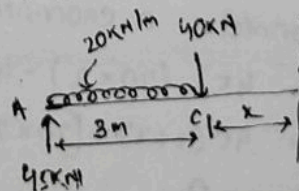 20KN/m 40KN
A
3m C x
45KN